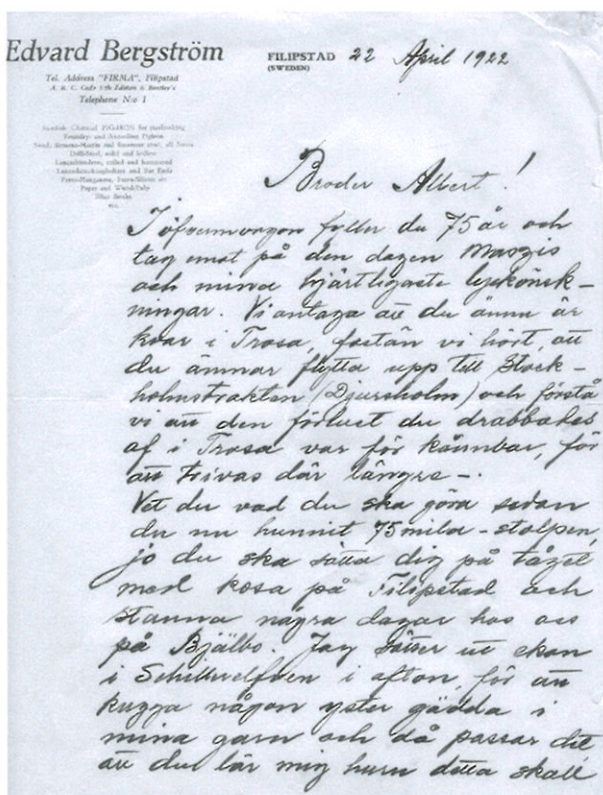 Edvard Bergström
Tel. Address "FIRMA", Filipstad
A. B. C. Code 5th Edition & Bentley's
Telephone No 1
FILIPSTAD 22 April 1922
(SWEDEN)
Swedish Charcoal PIGIRON for steelmaking
Foundry- and Pigiron
Lancashire-iron, rolled and hammered
and Bar Ends
Ferro-Manganese, Ferro-Silicon etc
Paper and Wood-Pulp
etc.
Broder Albert!
I öfvermorgon fyller du 75 år och
tag emot på den dagen Maggis
och mina hjärtligaste lyckönsk-
ningar. Vi antaga att du ännu är
kvar i Trosa, fastän vi hört, att
du ämnar flytta upp till Stock-
holmstrakten (Djursholm) och förstå
vi att den förlust du drabbades
af i Trosa var för kännbar, för
att trivas där längre -.
Vet du vad du ska göra sedan
du nu hunnit 75 mila-stolpen,
jo du ska sätta dig på tåget
med kosa på Filipstad och
stanna några dagar hos oss
på Bjälbo. Jag sätter ut ekan
i i afton, för att
kugga någon yster gädda i
mina garn och då passar det
att du lär mig huru detta skall